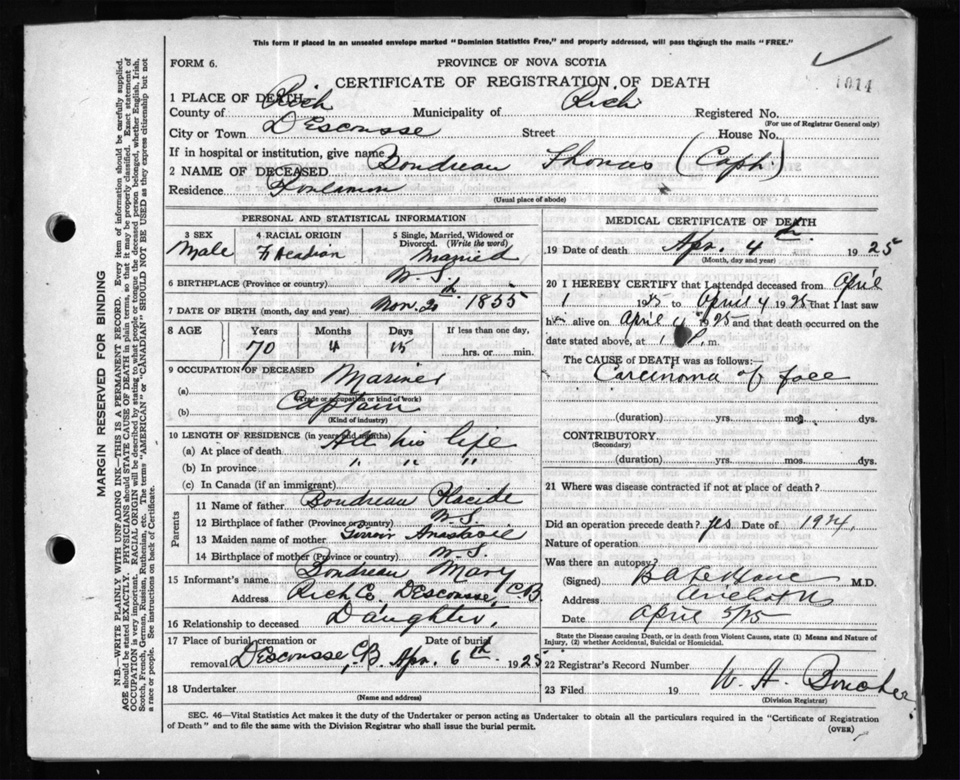 This form if placed in an unsealed envelope marked "Dominion Statistics Free," and property addressed, will pass through the mails "FREE."
FORM 6.
PROVINCE OF NOVA SCOTIA
1014
CERTIFICATE OF REGISTRATION OF DEATH
1 PLACE OF DEATH
County of Rich Municipality of Rich Registered No.
(For use of Registrar General only)
City or Town D'Escousse Street House No.
If in hospital or institution, give name
2 NAME OF DECEASED Boudreau Thomas (Capt.)
Residence Poulamon
(Usual place of abode)
PERSONAL AND STATISTICAL INFORMATION
3 SEX
Male
4 RACIAL ORIGIN
Acadian
5 Single, Married, Widowed or Divorced. (Write the word)
Married
6 BIRTHPLACE (Province or country) N.S.
7 DATE OF BIRTH (month, day and year) Nov. 20th 1855
8 AGE Years Months Days If less than one day,
70 4 15 hrs. or min.
9 OCCUPATION OF DECEASED
(a) Mariner
(Trade or occupation or kind of work)
(b) Captain
(Kind of industry)
10 LENGTH OF RESIDENCE (in years and months)
(a) At place of death All his life
(b) In province " " "
(c) In Canada (if an immigrant)
Parents
11 Name of father Boudreau Placide
12 Birthplace of father (Province or country) N.S.
13 Maiden name of mother Anastasie
14 Birthplace of mother (Province or country) N.S.
15 Informant's name Boudreau Mary
Address Rich Co. D'Escousse, C.B.
16 Relationship to deceased Daughter.
17 Place of burial, cremation or removal D'Escousse C.B. Date of burial Apr. 6th 1925
18 Undertaker
(Name and address)
MEDICAL CERTIFICATE OF DEATH
19 Date of death Apr. 4th 1925
(Month, day and year)
20 I HEREBY CERTIFY that I attended deceased from April
1 1925 to April 4 1925 that I last saw
him alive on April 4 1925 and that death occurred on
date stated above, at 1 P. m.
The CAUSE of DEATH was as follows:
Carcinoma of face
(duration) yrs. mos. dys.
CONTRIBUTORY.
(Secondary)
(duration) yrs. mos. dys.
21 Where was disease contracted if not at place of death?
Did an operation precede death? yes Date of 1924,
Nature of operation
Was there an autopsy?
(Signed) M.D.
Address Arichat NS
Date April 5/25
State the Disease causing Death, or in death from Violent Causes, state (1) Means and Nature of Injury, (2) whether Accidental, Suicidal or Homicidal.
22 Registrar's Record Number
23 Filed 19 W. H.
(Division Registrar)
SEC. 46—Vital Statistics Act makes it the duty of the Undertaker or person acting as Undertaker to obtain all the particulars required in the "Certificate of Registration
of Death" and to file the same with the Division Registrar who shall issue the burial permit.
(OVER)
MARGIN RESERVED FOR BINDING
N.B.—WRITE PLAINLY WITH UNFADING INK—THIS IS A PERMANENT RECORD. Every item of information should be carefully supplied.
AGE should be stated EXACTLY. PHYSICIANS should STATE CAUSE OF DEATH in plain terms, so that it may be properly classified. Exact statement of
OCCUPATION is very important. RACIAL ORIGIN will be described by stating to what people or tongue the deceased person belonged, whether English, Irish,
Scotch, French, German, Russian, Ruthenian, etc. The terms "AMERICAN" or "CANADIAN" SHOULD NOT BE USED as they express citizenship but not
a race or people. See instructions on back of Certificate.